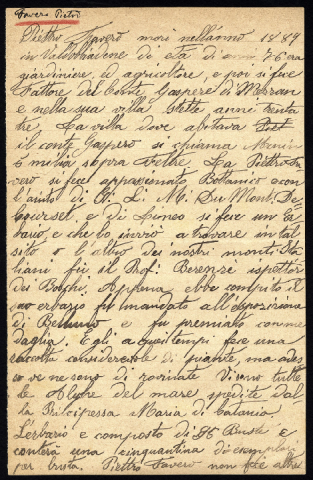 Favero Pietro
Pietro Favero morì nell'anno 1889
in Valdobiadene di età di anni 76 era
giardiniere, e agricoltore, e poi si fece
Fattore del Conte Gaspere di Mezzan
e nella sua villa stette anni trenta
tre La villa dove abitava
il conte Gaspero si chiama Menin
6 miglia sopra Feltre La Piettro Fa
vero si fece appassionato Bottanico con
l'aiuto di G. L. M. Du Mont. De
Courset, e di Lineo si fece un er
bario, e che lo inviò a trovare in tal
sito o l'altro dei nostri monti Ita
liani fu il Prof. Berenzé ispettor
dei Boschi, Appena ebbe compito il
suo erbario fu mandato all'esposizione
di Belluno e fu premiato con me
daglia. Egli a quei tempi fece una
racolta considerevole di piante, ma ades
so ve ne sono di rovinate Vi sono tutte
le Alghe del mare spedite dal
la Principessa Maria di Catania.
L'erbario e composto di 86 Buste e
conterà una cinquantina di esemplari
per busta. Piettro Favero non fece altri